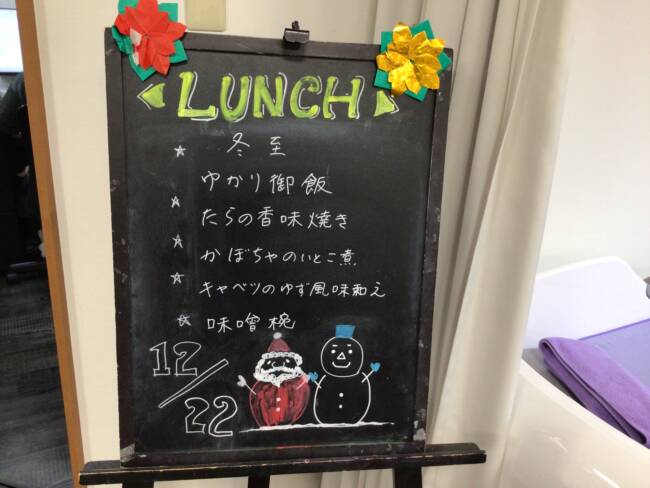 LUNCH
☆ 冬至
ゆかり御飯
☆ たらの香味焼き
☆ かぼちゃのいとこ煮
☆ キャベツのゆず風味和え
☆ 味噌椀
12/22